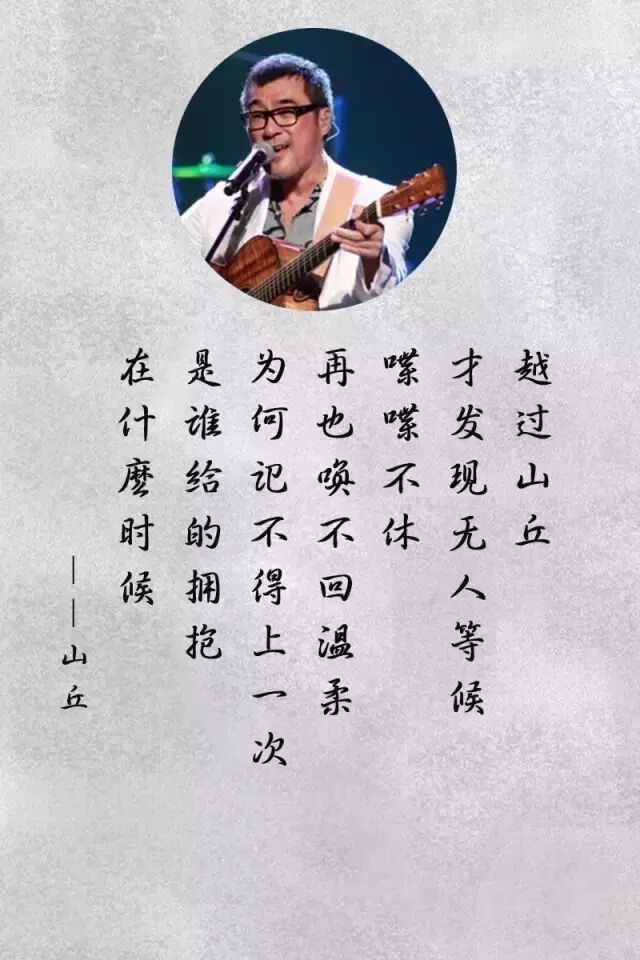 越过山丘
才发现无人等候
喋喋不休
再也唤不回温柔
为何记不得上一次
是谁给的拥抱
在什麽时候
——山丘